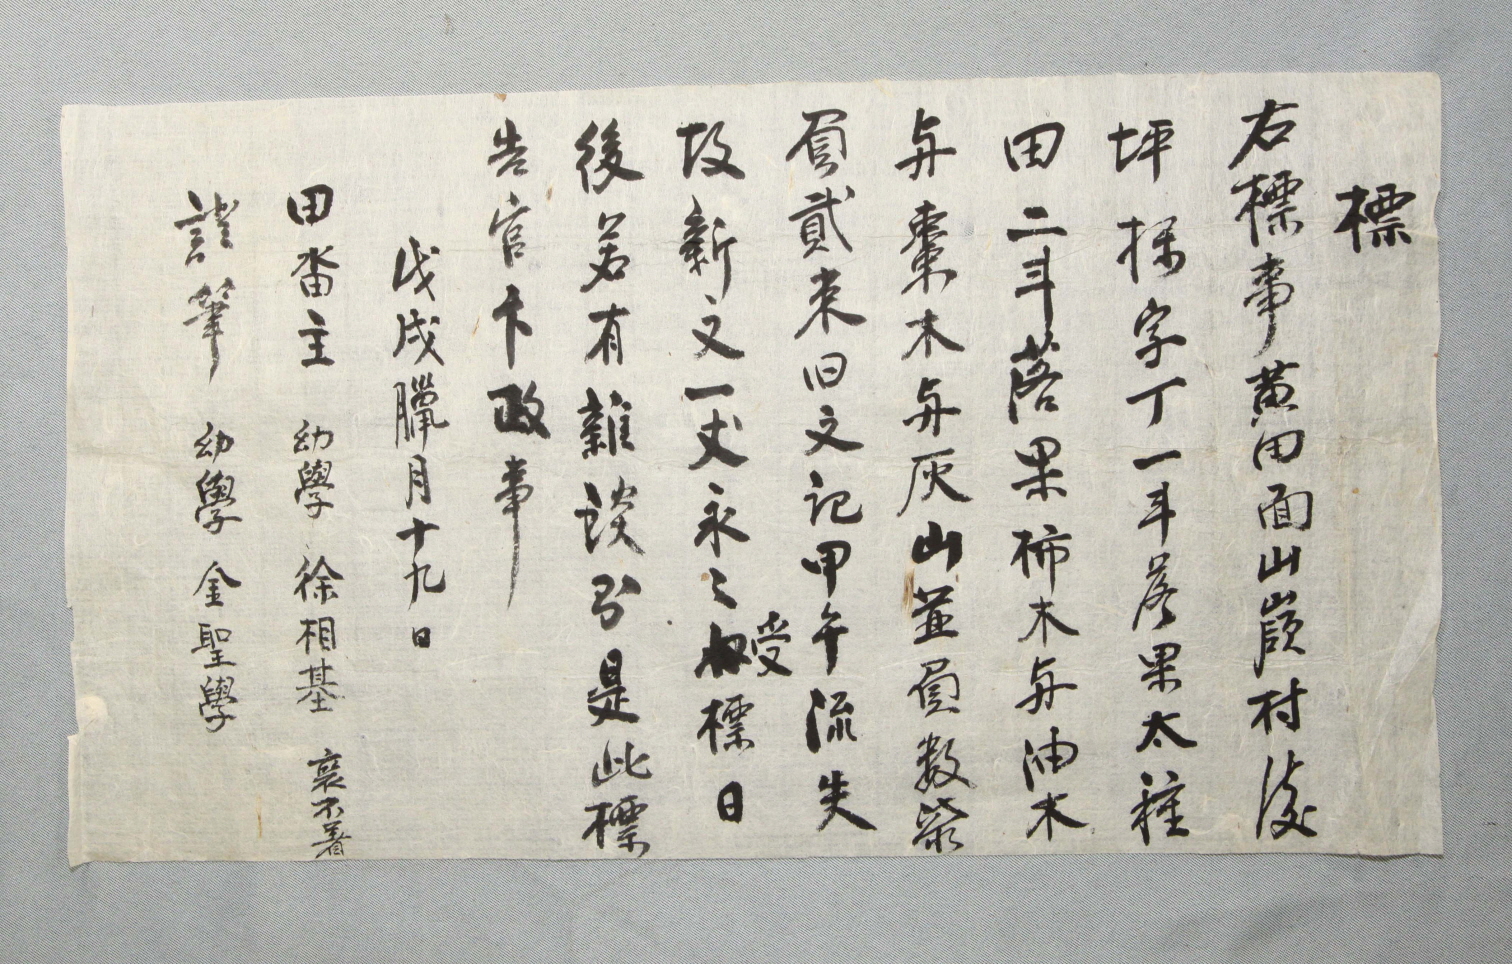 標
右標事黃田面山嶺村後
坪 字丁一斗落果太種
田二斗落果柿木与油木
与棗木与灰山並員數
員貳束旧文記甲午流失
故新文一丈永〻受標日
後若有雜談則是此標
告官卞政事
戊戌臘月十九日
田畓主 幼學 徐相基 哀不着
證筆 幼學 金聖學